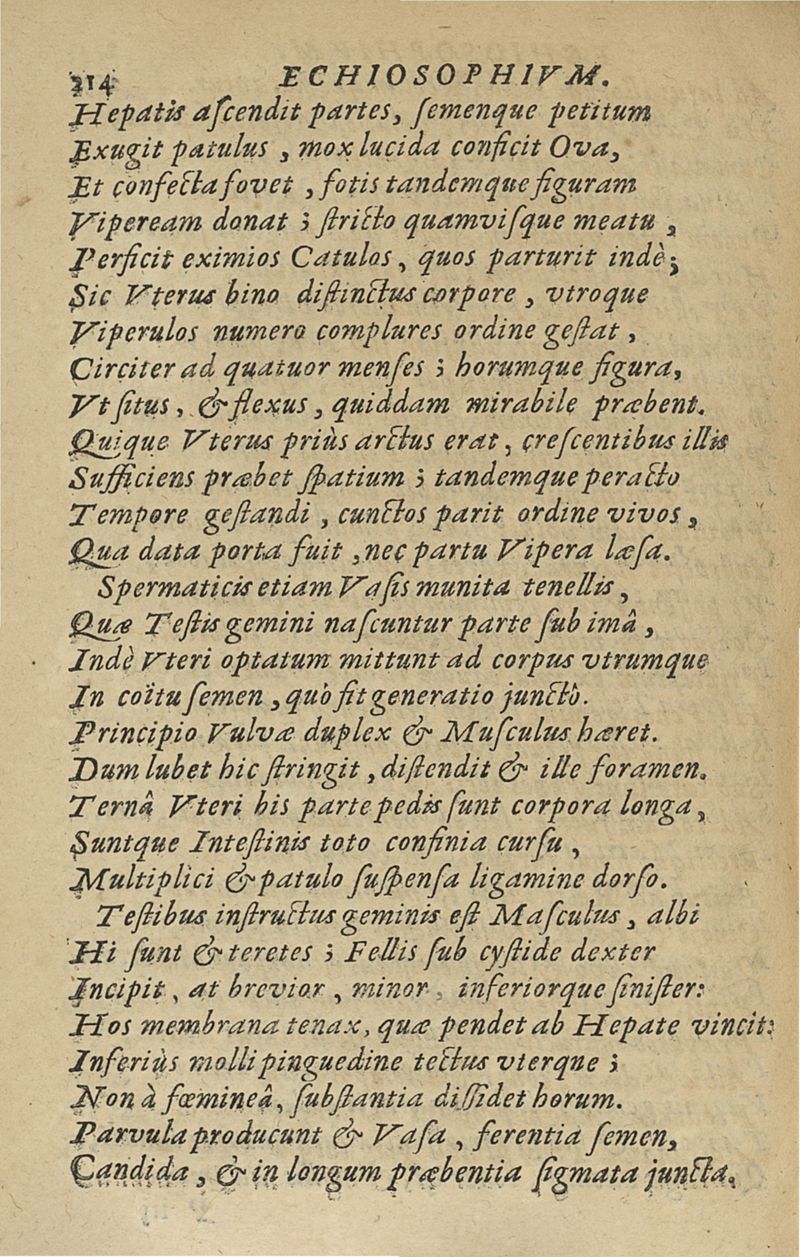 214 ECHIOSOPHIVM.
Hepatis aſcendit partes, ſemenque petitum
Exugit patulus, mox lucida conficit Ova,
Et confecta fovet, fotis tandemque figuram
Viperream donat; ſtricto quamviſque meatu,
Perficit eximios Catulos, quos parturit indè;
Sic Vterus bino diſtinctus corpore, vtroque
Viperulos numero complures ordine geſtat,
Circiter ad quatuor menſes; horumque figura,
Vt ſitus, & flexus, quiddam mirabile præbent.
Quique Vterus priùs arctus erat, creſcentibus illis
Sufficiens præbet ſpatium; tandemque peracto
Tempore geſtandi, cunctos parit ordine vivos,
Qua data porta fuit, nec partu Vipera læſa.
Spermaticis etiam Vaſis munita tenellis,
Quæ Teſtis gemini naſcuntur parte ſub imâ,
Indè Vteri optatum mittunt ad corpus vtrumque
In coïtu ſemen, quò fit generatio junctò.
Principio Vulvæ duplex & Muſculus hæret.
Dum lubet hic ſtringit, diſtendit & ille foramen.
Ternâ Vteri his parte pedis ſunt corpora longa,
Suntque Inteſtinis toto confinia curſu,
Multiplici & patulo ſuſpenſa ligamine dorſo.
Teſtibus inſtructus geminis eſt Maſculus, albi
Hi ſunt & teretes; Fellis ſub cyſtide dexter
Incipit, at brevior, minor, inferiorque ſiniſter:
Hos membrana tenax, quæ pendet ab Hepate vincit:
Inferiùs molli pinguedine tectus vterque;
Non à fœmineâ, ſubſtantia diſſidet horum.
Parvula producunt & Vaſa, ferentia ſemen,
Candida, & in longum præbentia ſigmata juncta.